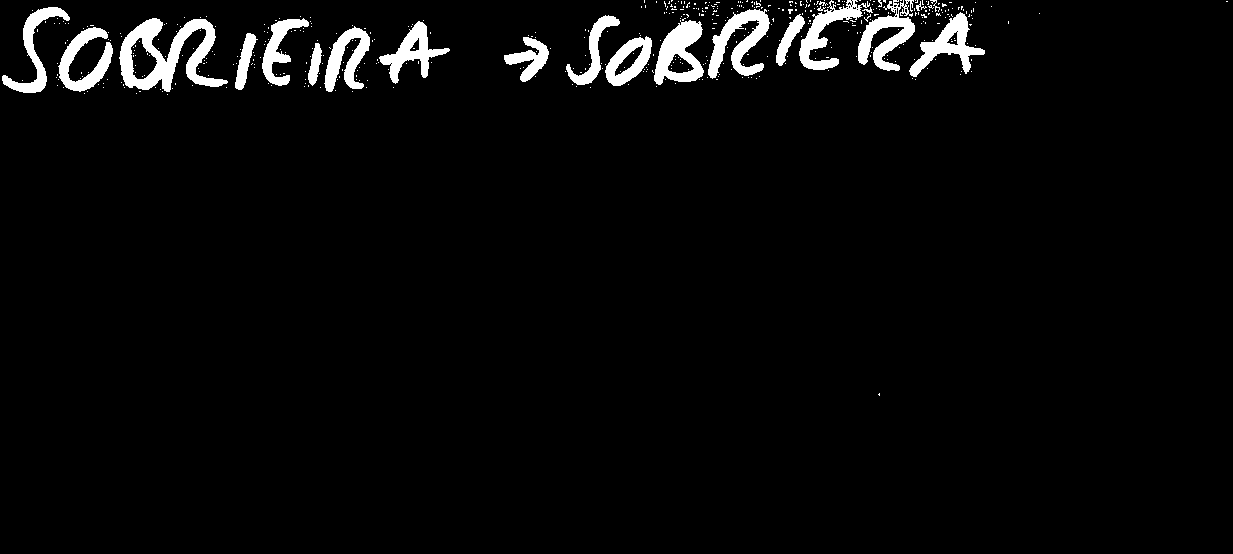 SOBRIEIRA → SOBRIERA